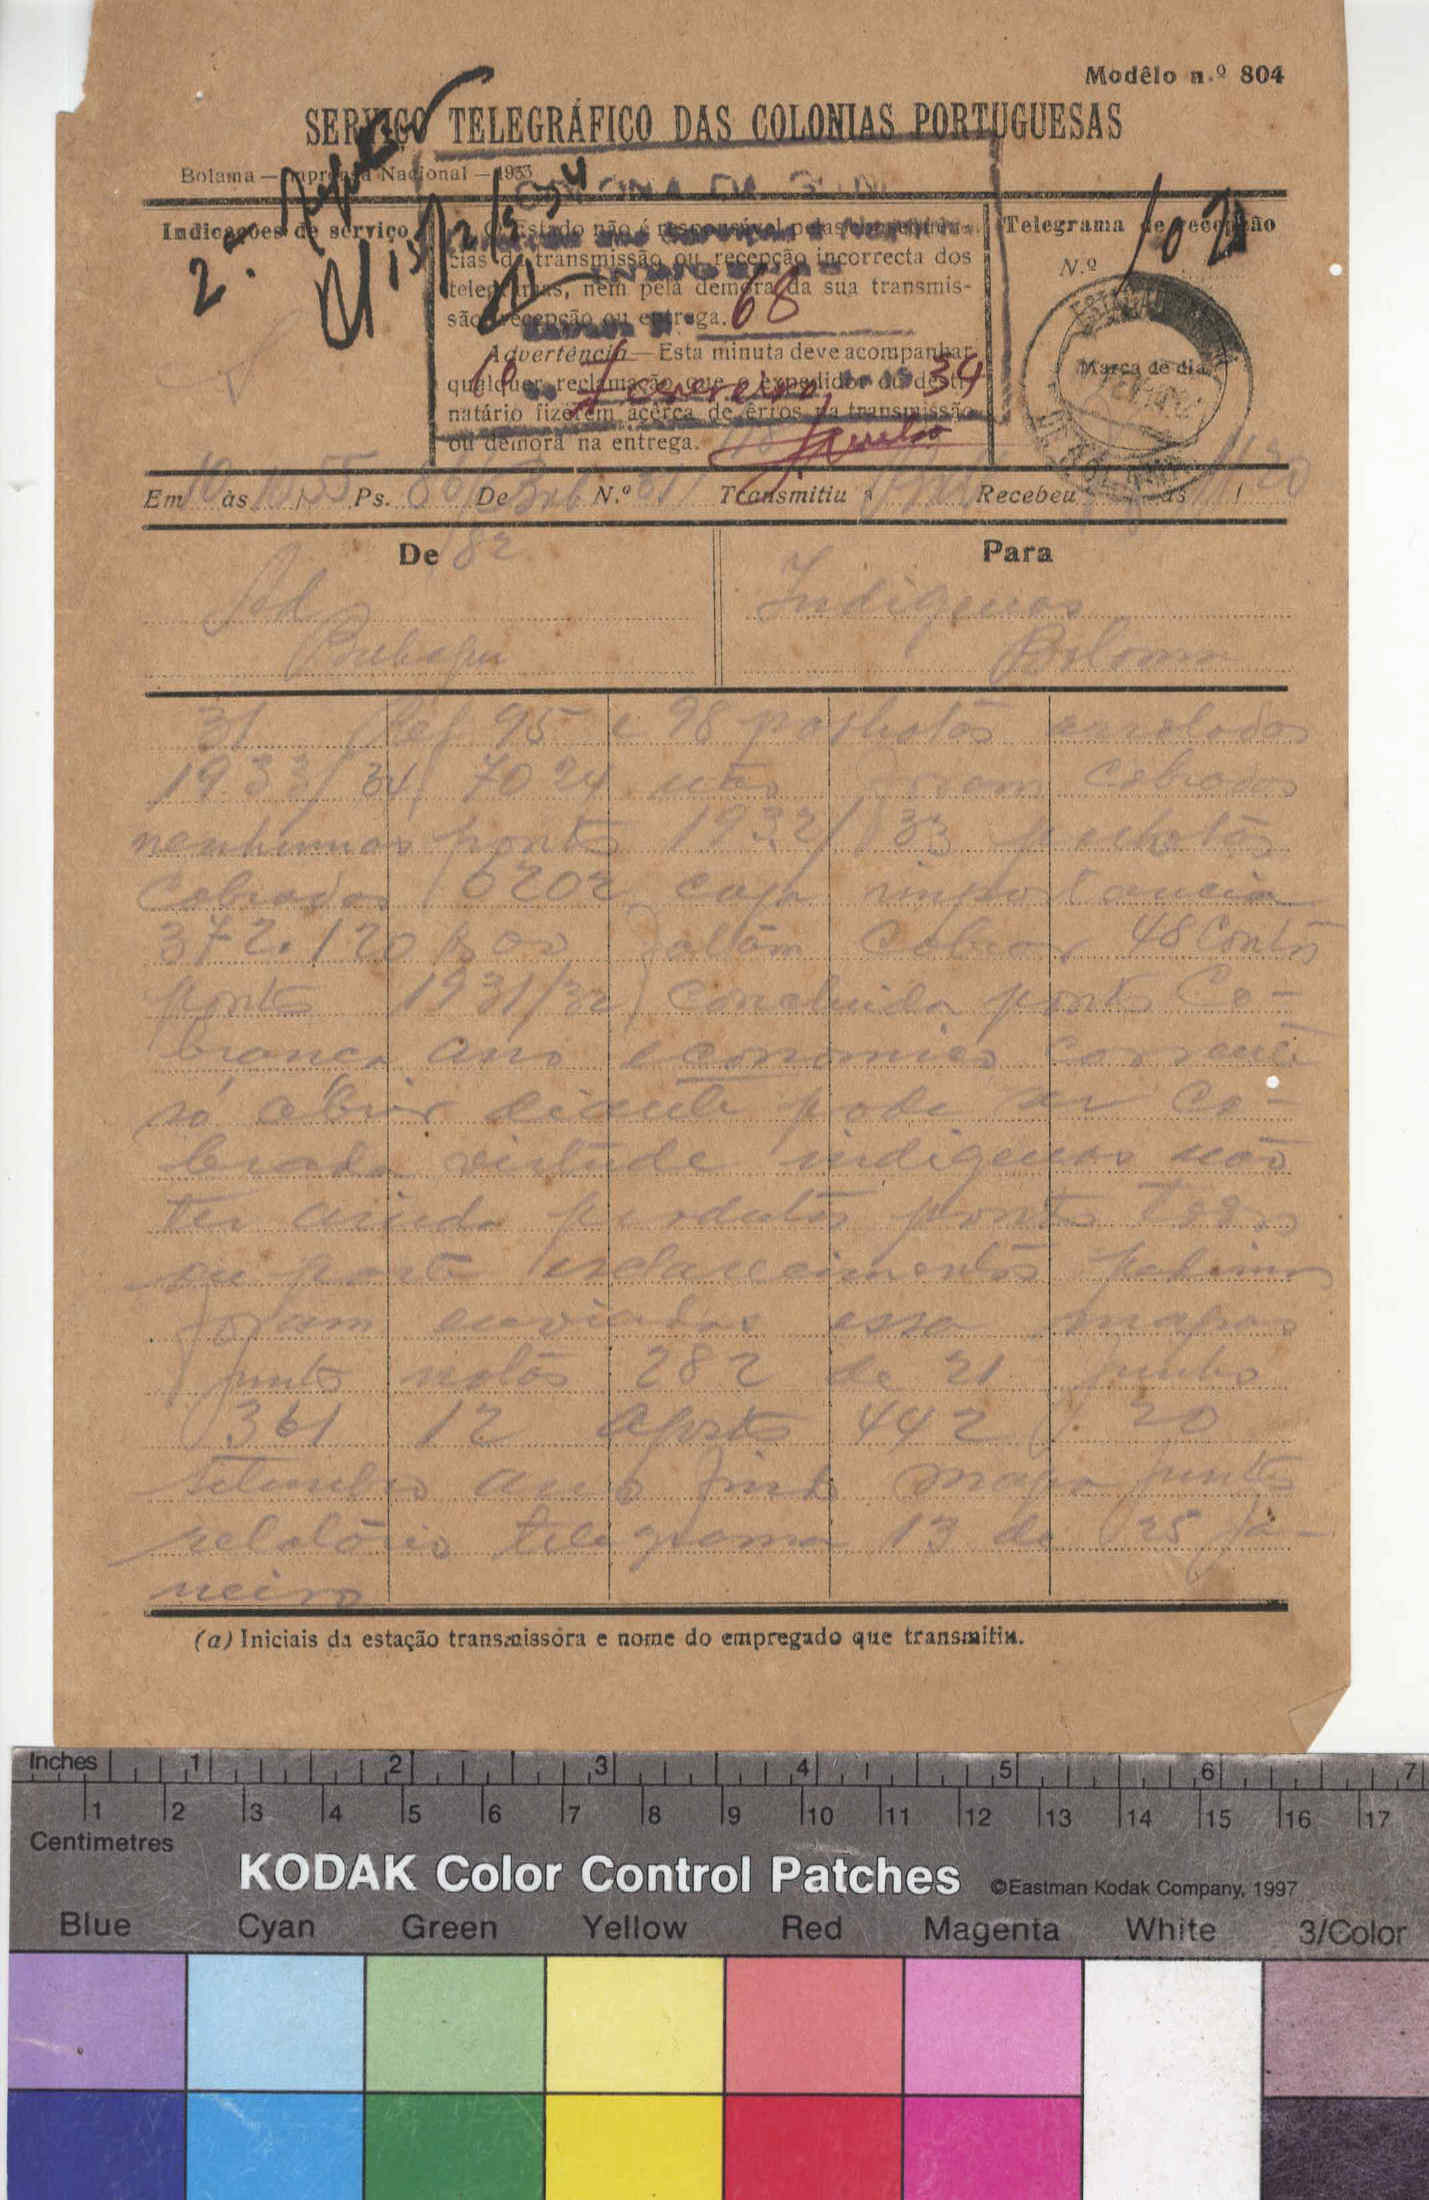 Modêlo n.º 804
SERVIÇO TELEGRÁFICO DAS COLONIAS PORTUGUESAS
Bolama — Imprensa Nacional — 1933
Indicações de serviço
O Estado não é responsável pelas
cias da transmissão ou recepção incorrecta dos
telegramas, nem pela demora da sua transmis-
são recepção ou entrega. 68
Advertência — Esta minuta deve acompanhar
qualquer reclamação que o expedidor ou desti-
natário fizerem acêrca de êrros na transmissão
ou demora na entrega.
10 Fevereiro 34
Telegrama de recepção
N.º 102
Marca de dia
Em 10 às 10 55 Ps. De Bub N.º 31 Transmitiu a Recebeu às 11 20
De 82
Para
Ad
Bubaque
Indigenas
Bolama
31 Ref 95 e 98 palhotas arroladas
1933/34 7024 não foram cobradas
nenhumas ponto 1932/933 palhotas
cobradas 6202 cuja importancia
372.120$00 faltam cobrar 48 contos
ponto 1931/32 concluida ponto co-
brança ano economico corrente
só abril diante pode ser co-
brada virtude indigenas não
ter ainda produtos ponto
esclarecimentos pedimos
foram enviados essa mapas
junto notas 282 de 21 junho
361 12 Agosto 442 20
setembro ano findo mapa junto
relatório telegrama 13 de 25 Ja-
neiro
(a) Iniciais da estação transmissôra e nome do empregado que transmitiu.
Inches 1 2 3 4 5 6 7
1 2 3 4 5 6 7 8 9 10 11 12 13 14 15 16 17
Centimetres
KODAK Color Control Patches ©Eastman Kodak Company, 1997
Blue Cyan Green Yellow Red Magenta White 3/Color